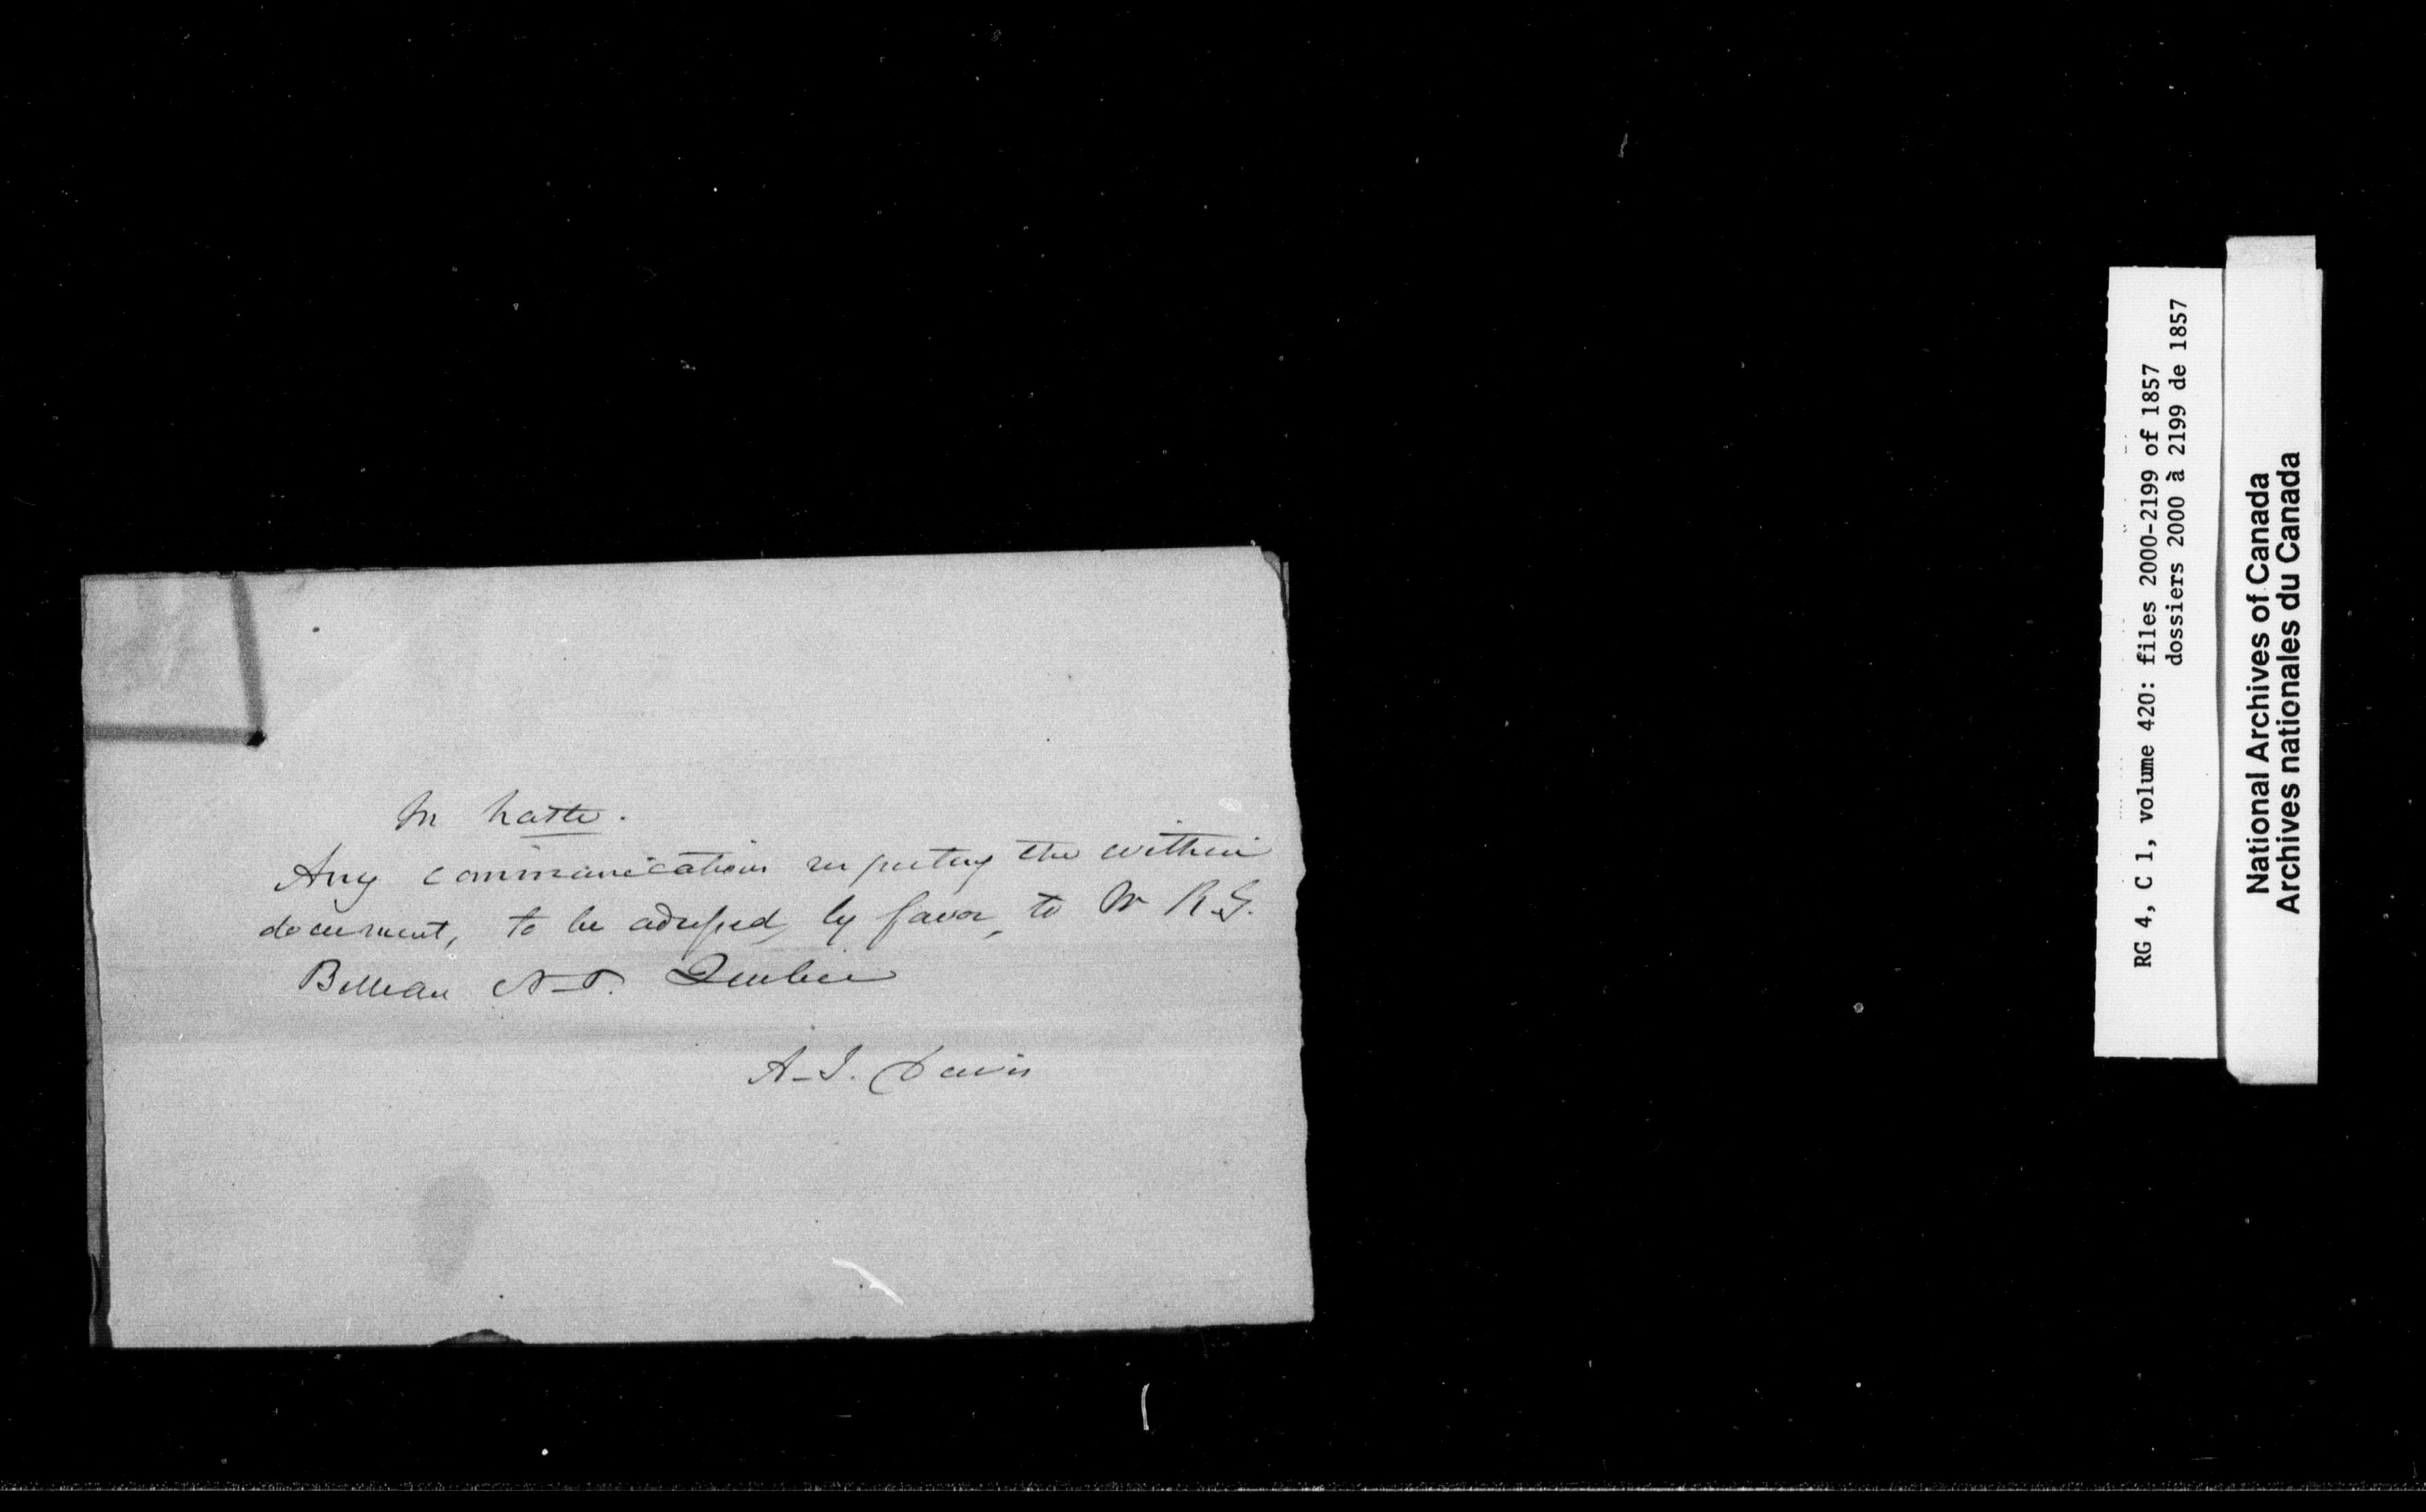 In haste.
Any communication respecting the within
document, to be adressed, by favor, to Mr R.G.
Belleau N.P. Quebec
A. J. Davis
RG 4, C 1, volume 420: files 2000-2199 of 1857
dossiers 2000 à 2199 de 1857
National Archives of Canada
Archives nationales du Canada